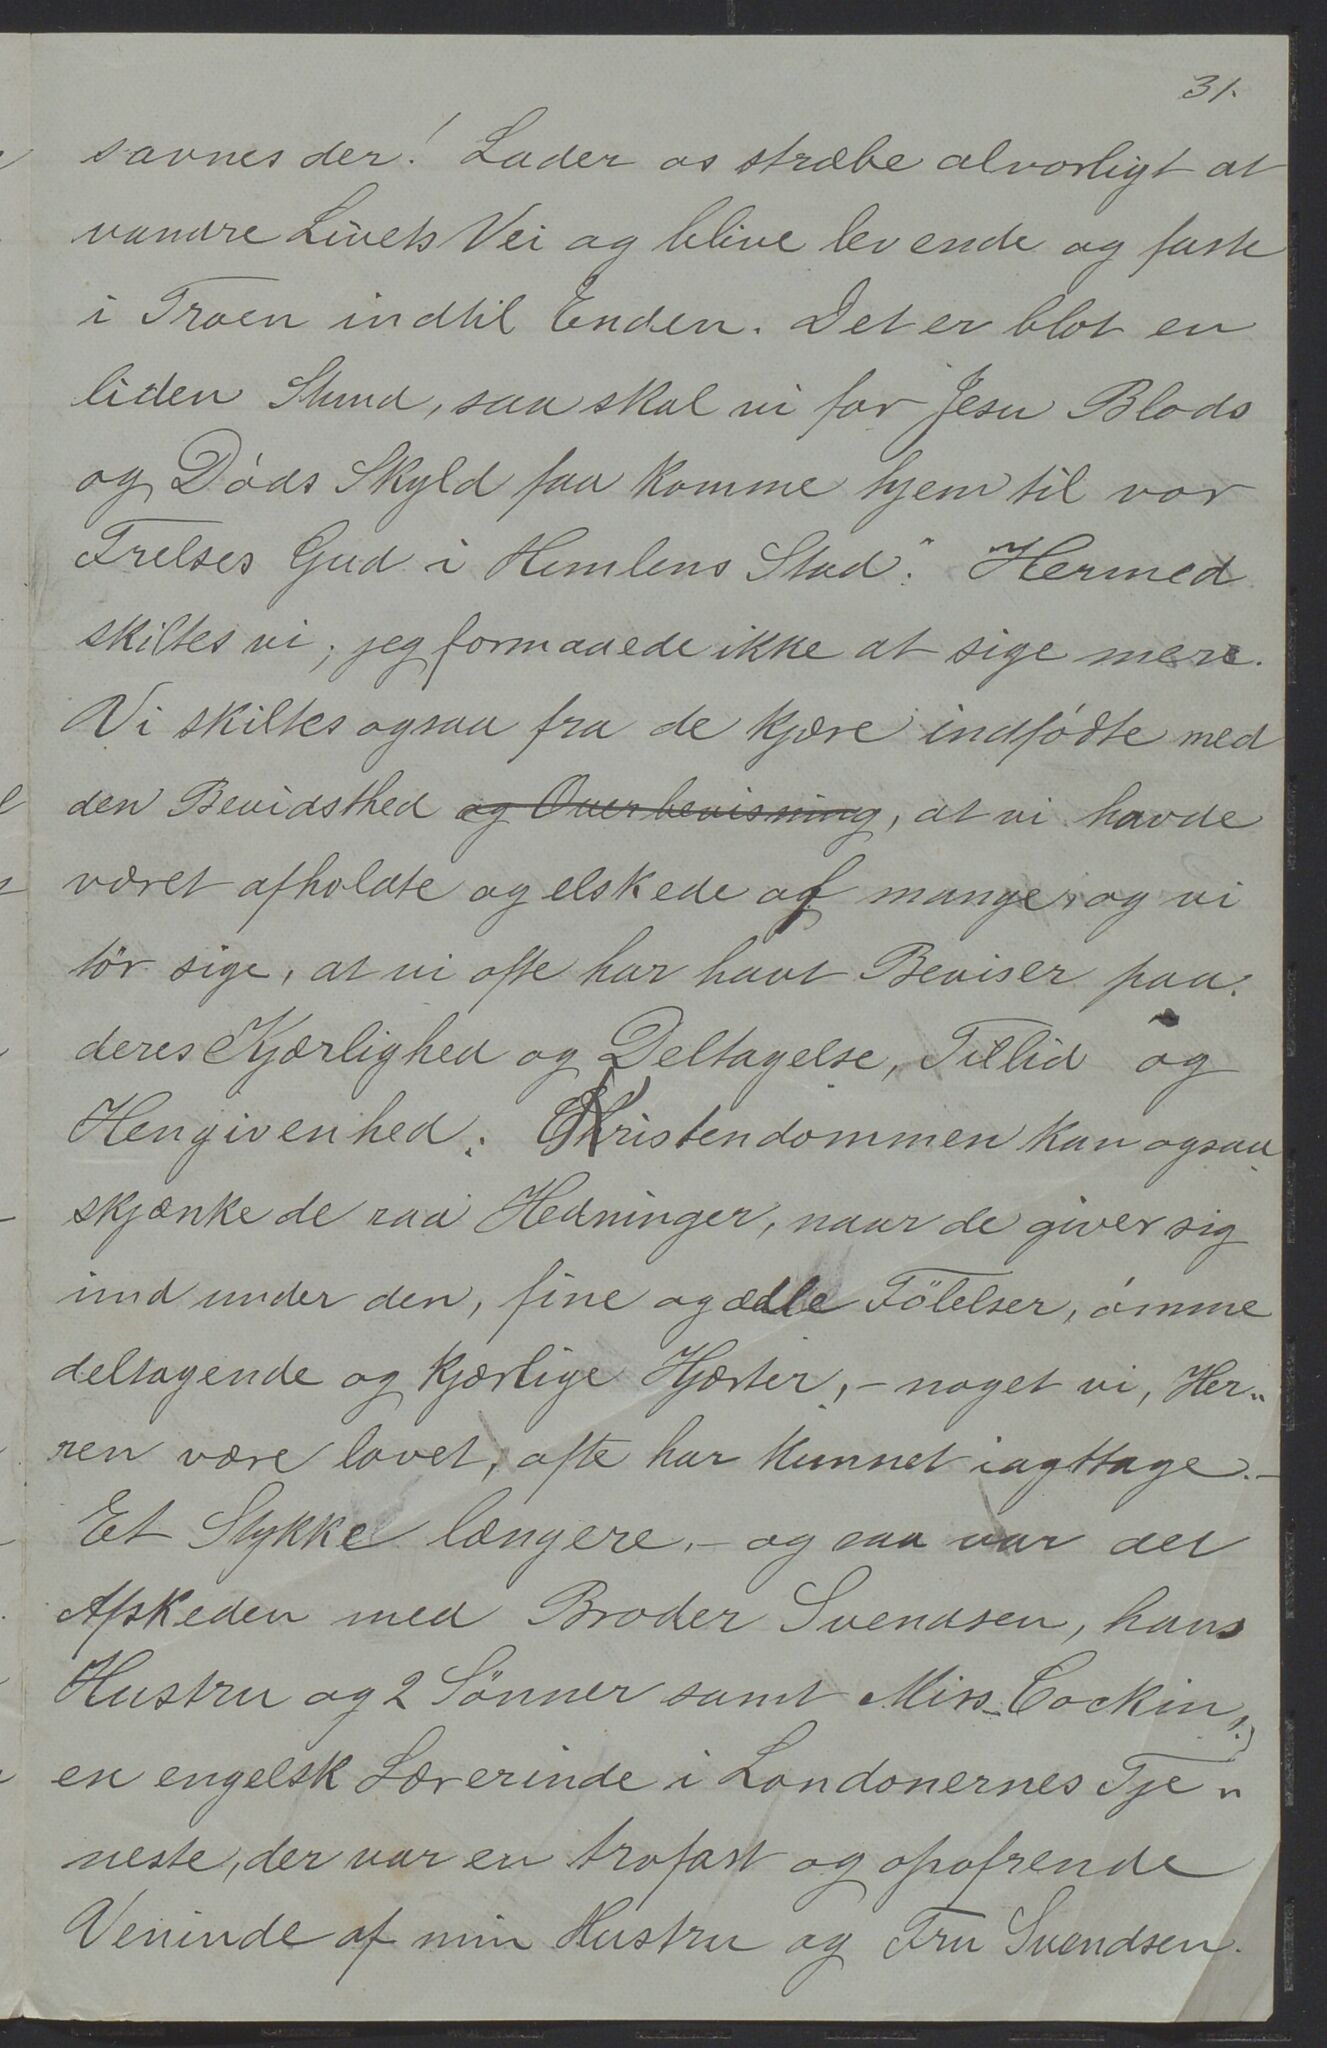 31.
savnes der! Lader os stræbe alvorligt at
vandre Livets Vei og blive levende og faste
i Troen indtil Enden. Det er blot en
liden Stund, saa skal vi for Jesu Blods
og Døds Skyld faa komme hjem til vor
Frelses Gud i Himlens Stad." Hermed
skiltes vi; jeg formaaede ikke at sige mere.
Vi skiltes ogsaa fra de kjære indfødte med
den Bevidsthed og Overbevisning, at vi havde
været afholdte og elskede af mange, og vi
tör sige, at vi ofte har havt Beviser paa
deres Kjærlighed og Deltagelse, Tillid og
Hengivenhed. Kristendommen kan ogsaa
skjænke de raa Hedninger, naar de giver sig
ind under den, fine og ædle Fölelser, ömme
deltagende og kjærlige Hjærter, – noget vi, Her„
ren være lovet, ofte har kunnet iagttage. –
Et Stykke længere, – og saa var det
Afskeden med Broder Svendsen, hans
Hustru og 2 Sönner samt Miss Cockin,
en engelsk Lærerinde i Londonernes Tje„
neste, der var en trofast og opofrende
Veninde af min Hustru og Fru Svendsen.